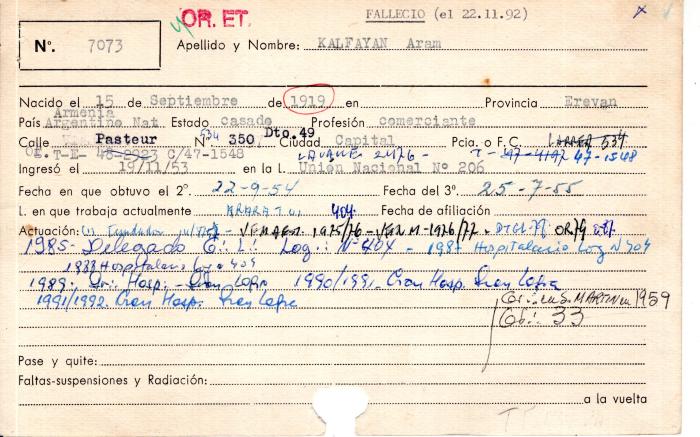 OR. ET. FALLECIO (el 22.11.92)
N°. 7073 Apellido y Nombre: KALFAYAN Aram
Nacido el 15 de Septiembre de 1919 en Provincia Erevan
Armenia
País Argentino Nat. Estado casado Profesión comerciante
Calle Pasteur 534 N° 350 Dto.49 Ciudad Capital Pcia. o F.C. 534
T-E- 48-2923 C/47-1548 2176 - T-47-4147 47-1548
Ingresó el 19/11/53 en la L. Unión Nacional N° 206
Fecha en que obtuvo el 2°. 22-9-54 Fecha del 3°. 25-7-55
L. en que trabaja actualmente ARARAT 404 Fecha de afiliación
Actuación: Fundador 1975/76 - 1976/77 - OR79
1985- Delegado G∴ L∴ Log∴ N-404 - 1987 Hospitalario Log N404
1988 Hospitalario Log 404
1989: Gr∴ Hosp∴ - Gran Logia 1990/1991- Gran Hosp. Gran Logia
1991/1992. Gran Hosp. Gran Logia
S. MARTIN 1959
Gr∴ 33
Pase y quite:
Faltas-suspensiones y Radiación:
a la vuelta